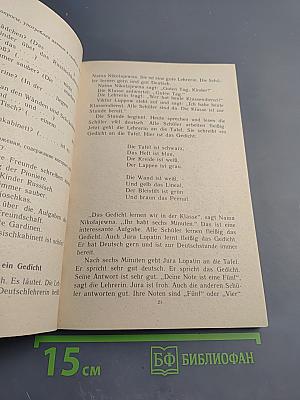 Naina Nikolajewna. Sie ist eine gute Lehrerin. Die Schü-
ler lernen gern und gut Deutsch.
Naina Nikolajewna sagt: „Guten Tag, Kinder!"
Die Klasse antwortet: „Guten Tag!"
Die Lehrerin fragt: „Wer hat heute Klassendienst?"
Viktor Luppow steht auf und sagt: „Ich habe heute
Klassendienst. Alle Schüler sind da. Die Klasse ist zur
Stunde bereit."
Die Stunde beginnt. Heute sprechen und lesen die
Schüler viel deutsch. Alle Schüler arbeiten fleißig.
Jetzt geht die Lehrerin an die Tafel. Sie schreibt ein
Gedicht an die Tafel. Hier ist das Gedicht:
Die Tafel ist schwarz,
Das Heft ist blau,
Die Kreide ist weiß,
Der Lappen ist grau.
Die Wand ist weiß,
Und gelb das Lineal,
Der Bleistift ist grün
Und braun das Pennal.
„Das Gedicht lernen wir in der Klasse", sagt Naina
Nikolajewna. „Ihr habt sechs Minuten." Das ist eine
interessante Aufgabe. Alle Schüler lernen fleißig das
Gedicht. Auch Jura Lopatin lernt fleißig das Gedicht.
Er hat Deutsch gern und ist zur Deutschstunde immer
bereit.
Nach sechs Minuten geht Jura Lopatin an die Tafel.
Er spricht sehr gut deutsch. Er spricht das Gedicht.
Seine Antwort ist sehr gut. „Deine Note ist eine Fünf",
sagt die Lehrerin. Jura ist froh. Auch die anderen Schü-
ler antworten gut. Ihre Noten sind „Fünf" oder „Vier"
21
den Wänden und
chkabinett) ist
Freunde schreiben
der Pioniere
Kinder Russisch
immer sauber
über die Aufgaben
Freundschaft
e Gardinen.
tschkabinett sind
ein Gedicht
h. Es läutet. Die
Deutschlehrerin
15 см
БФ БИБЛИОФАН